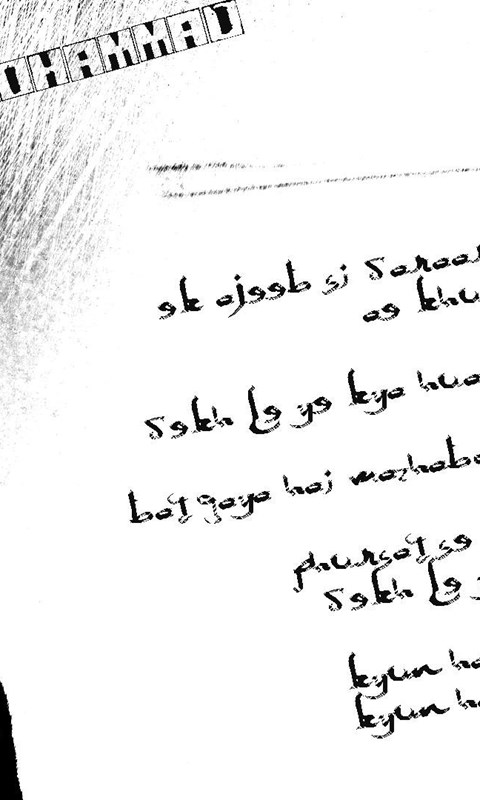 UHAMMAD
ek ajeeb si daraar
ae khu
dekh le ye kya hua
bat gaya hai mazhabo
phursat se
dekh le
kyun ha
kyun ha